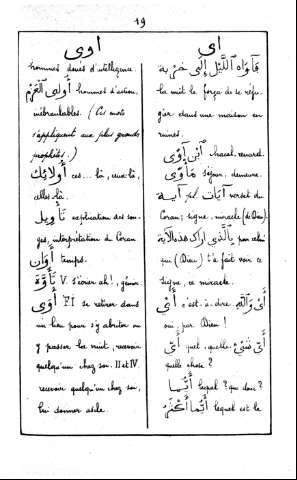 19
اوى
hommes doués d'intelligence.
أولى العزم hommes d'action,
inébranlables. (Ces mots
s'appliquent aux plus grands
prophètes.)
أولائك ces... là, ceux-là,
celles-là.
تأويل explication des son-
ges, interprétation du Coran
أوان temps.
تأوّه V. s'écrier ah!, gémir.
أوى FI se retirer dans
un lieu pour s'y abriter ou
y passer la nuit, recevoir
quelqu'un chez soi. II et IV.
recevoir quelqu'un chez soi,
lui donner asile.
اى
فآواه الليل إلى خربة
la nuit le força de se réfu-
gier dans une maison en
ruines.
ابن آوى chacal, renard.
مأوى séjour, demeure.
آية pl. آيات verset du
Coran; signe, miracle (de Dieu).
بالذي اراك هذه الآية par celui
qui (Dieu) t'a fait voir ce
signe, ce miracle.
أي c'est-à-dire, أي والله
oui, par Dieu!
أي quel, quelle, أي شيء
quelle chose?
أيما lequel? que donc?
أيما أكثر lequel est le